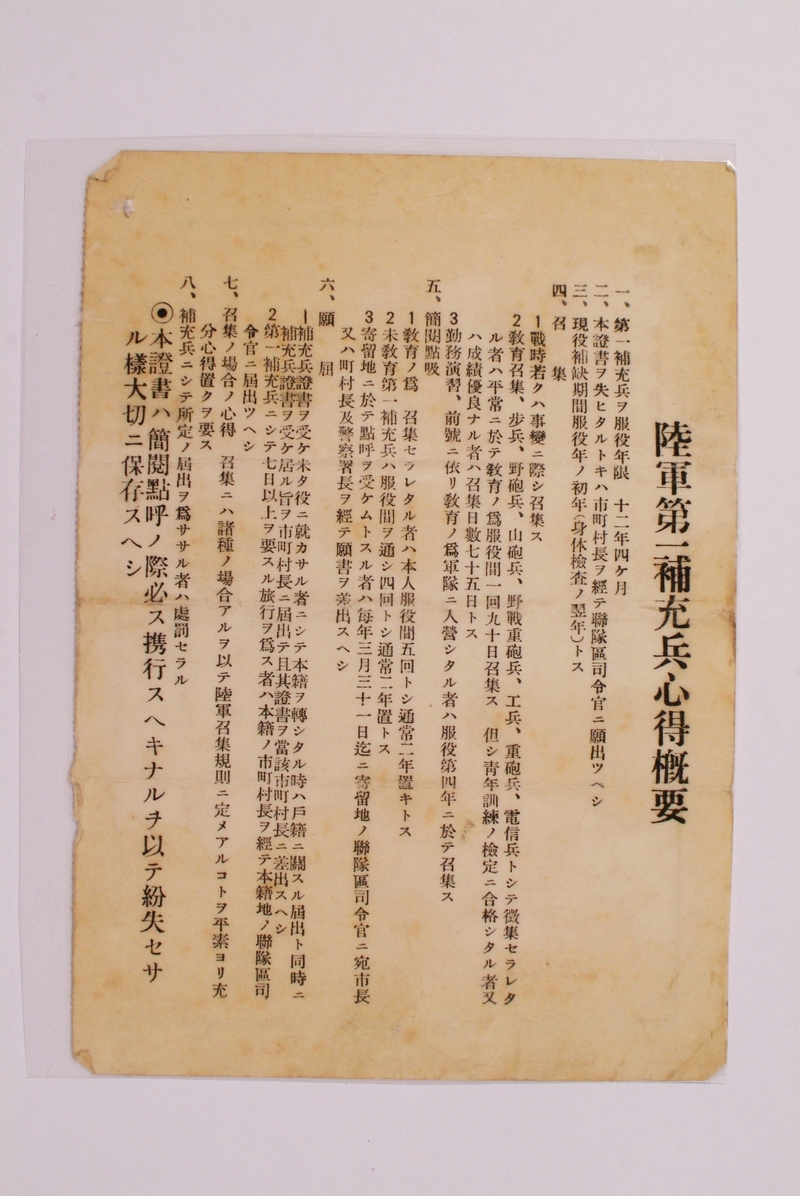 陸軍第一補充兵心得概要
一、第一補充兵ヲ服役年限　十二年四ケ月
二、本證書ヲ失ヒタルトキハ市町村長ヲ經テ聯隊區司令官ニ願出ツヘシ
三、現役補缺期間服役年ノ初年(身体檢査ノ翌年)トス
四、召　　集
1戰時若タハ事變ニ際シ召集ス
2敎育召集、步兵、野砲兵、山砲兵、野戰重砲兵、工兵、重砲兵、電信兵トシテ徵集セラレタ
ル者ハ平常ニ於テ敎育ノ爲服役間一回九十日召集ス　但シ靑年訓練ノ檢定ニ合格シタル者又
ハ成績優良ナル者ハ召集日數七十五日トス
3勤務演習、前號ニ依リ敎育ノ爲軍隊ニ入營シタル者ハ服役第四年ニ於テ召集ス
五、簡閱點吸
1敎育ノ爲　召集セラレタル者ハ本人服役間五回トシ通常二年置キトス
2未敎育第一補充兵ハ服役間ヲ通シ四回トシ通常二年置トス
3寄留地ニ於テ點呼ヲ受ケムトスル者ハ每年三月三十一日迄ニ寄留地ノ聯隊區司令官ニ宛市長
又ハ町村長及警察署長ヲ經テ願書ヲ差出スヘシ
六、願　　屆
1補充兵證書ヲ受ケ未タ役ニ就カサル者ニシテ本籍ヲ轉シタル時ハ戶籍ニ關スル屆出ト同時ニ
補充兵證書ヲ受ケ居ル旨ヲ市町村長ニ屆出テ且其證書ヲ當該市町村長ニ差出スヘシ
2第一補充兵ニシテ七日以上ヲ要スル旅行ヲ爲ス者ハ本籍ノ市町村長ヲ經テ本籍地ノ聯隊區司
令官ニ屆出ツヘシ
七、召集ノ場合ノ心得　召集ニハ諸種ノ場合アルヲ以テ陸軍召集規則ニ定メアルコトヲ平素ヨリ充
分心得置タヲ要ス
八、補充兵ニシテ所定ノ屆出ヲ爲ササル者ハ處罰セラル
◉本證書ハ簡閱點呼ノ際必ス携行スヘキナルヲ以テ紛失セサ
ル樣大切ニ保存スヘシ